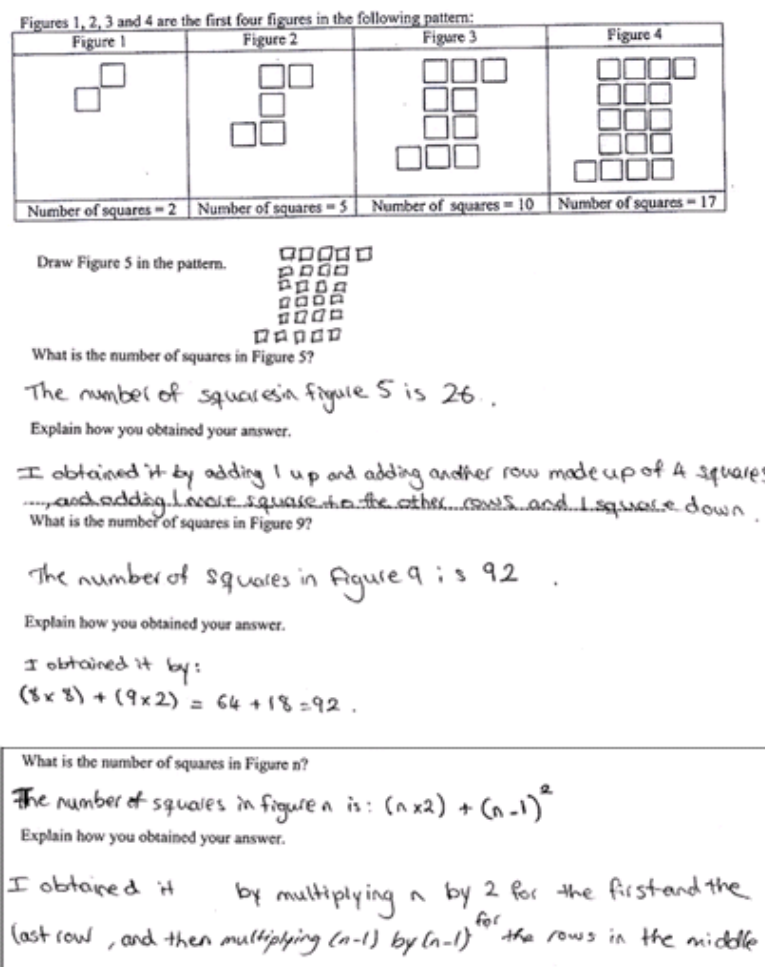 Figures 1, 2, 3 and 4 are the first four figures in the following pattern:
Figure 1 Figure 2 Figure 3 Figure 4
Number of squares = 2 Number of squares = 5 Number of squares = 10 Number of squares = 17
Draw Figure 5 in the pattern.
What is the number of squares in Figure 5?
The number of squares in figure 5 is 26.
Explain how you obtained your answer.
I obtained it by adding 1 up and adding another row made up of 4 squares
...., and adding 1 more square to the other rows and 1 square down.
What is the number of squares in Figure 9?
The number of squares in figure 9 is 92.
Explain how you obtained your answer.
I obtained it by:
(8 x 8) + (9 x 2) = 64 + 18 = 92.
What is the number of squares in Figure n?
The number of squares in figure n is: (n x 2) + (n - 1)²
Explain how you obtained your answer.
I obtained it by multiplying n by 2 for the first and the
last row, and then multiplying (n-1) by (n-1) for the rows in the middle